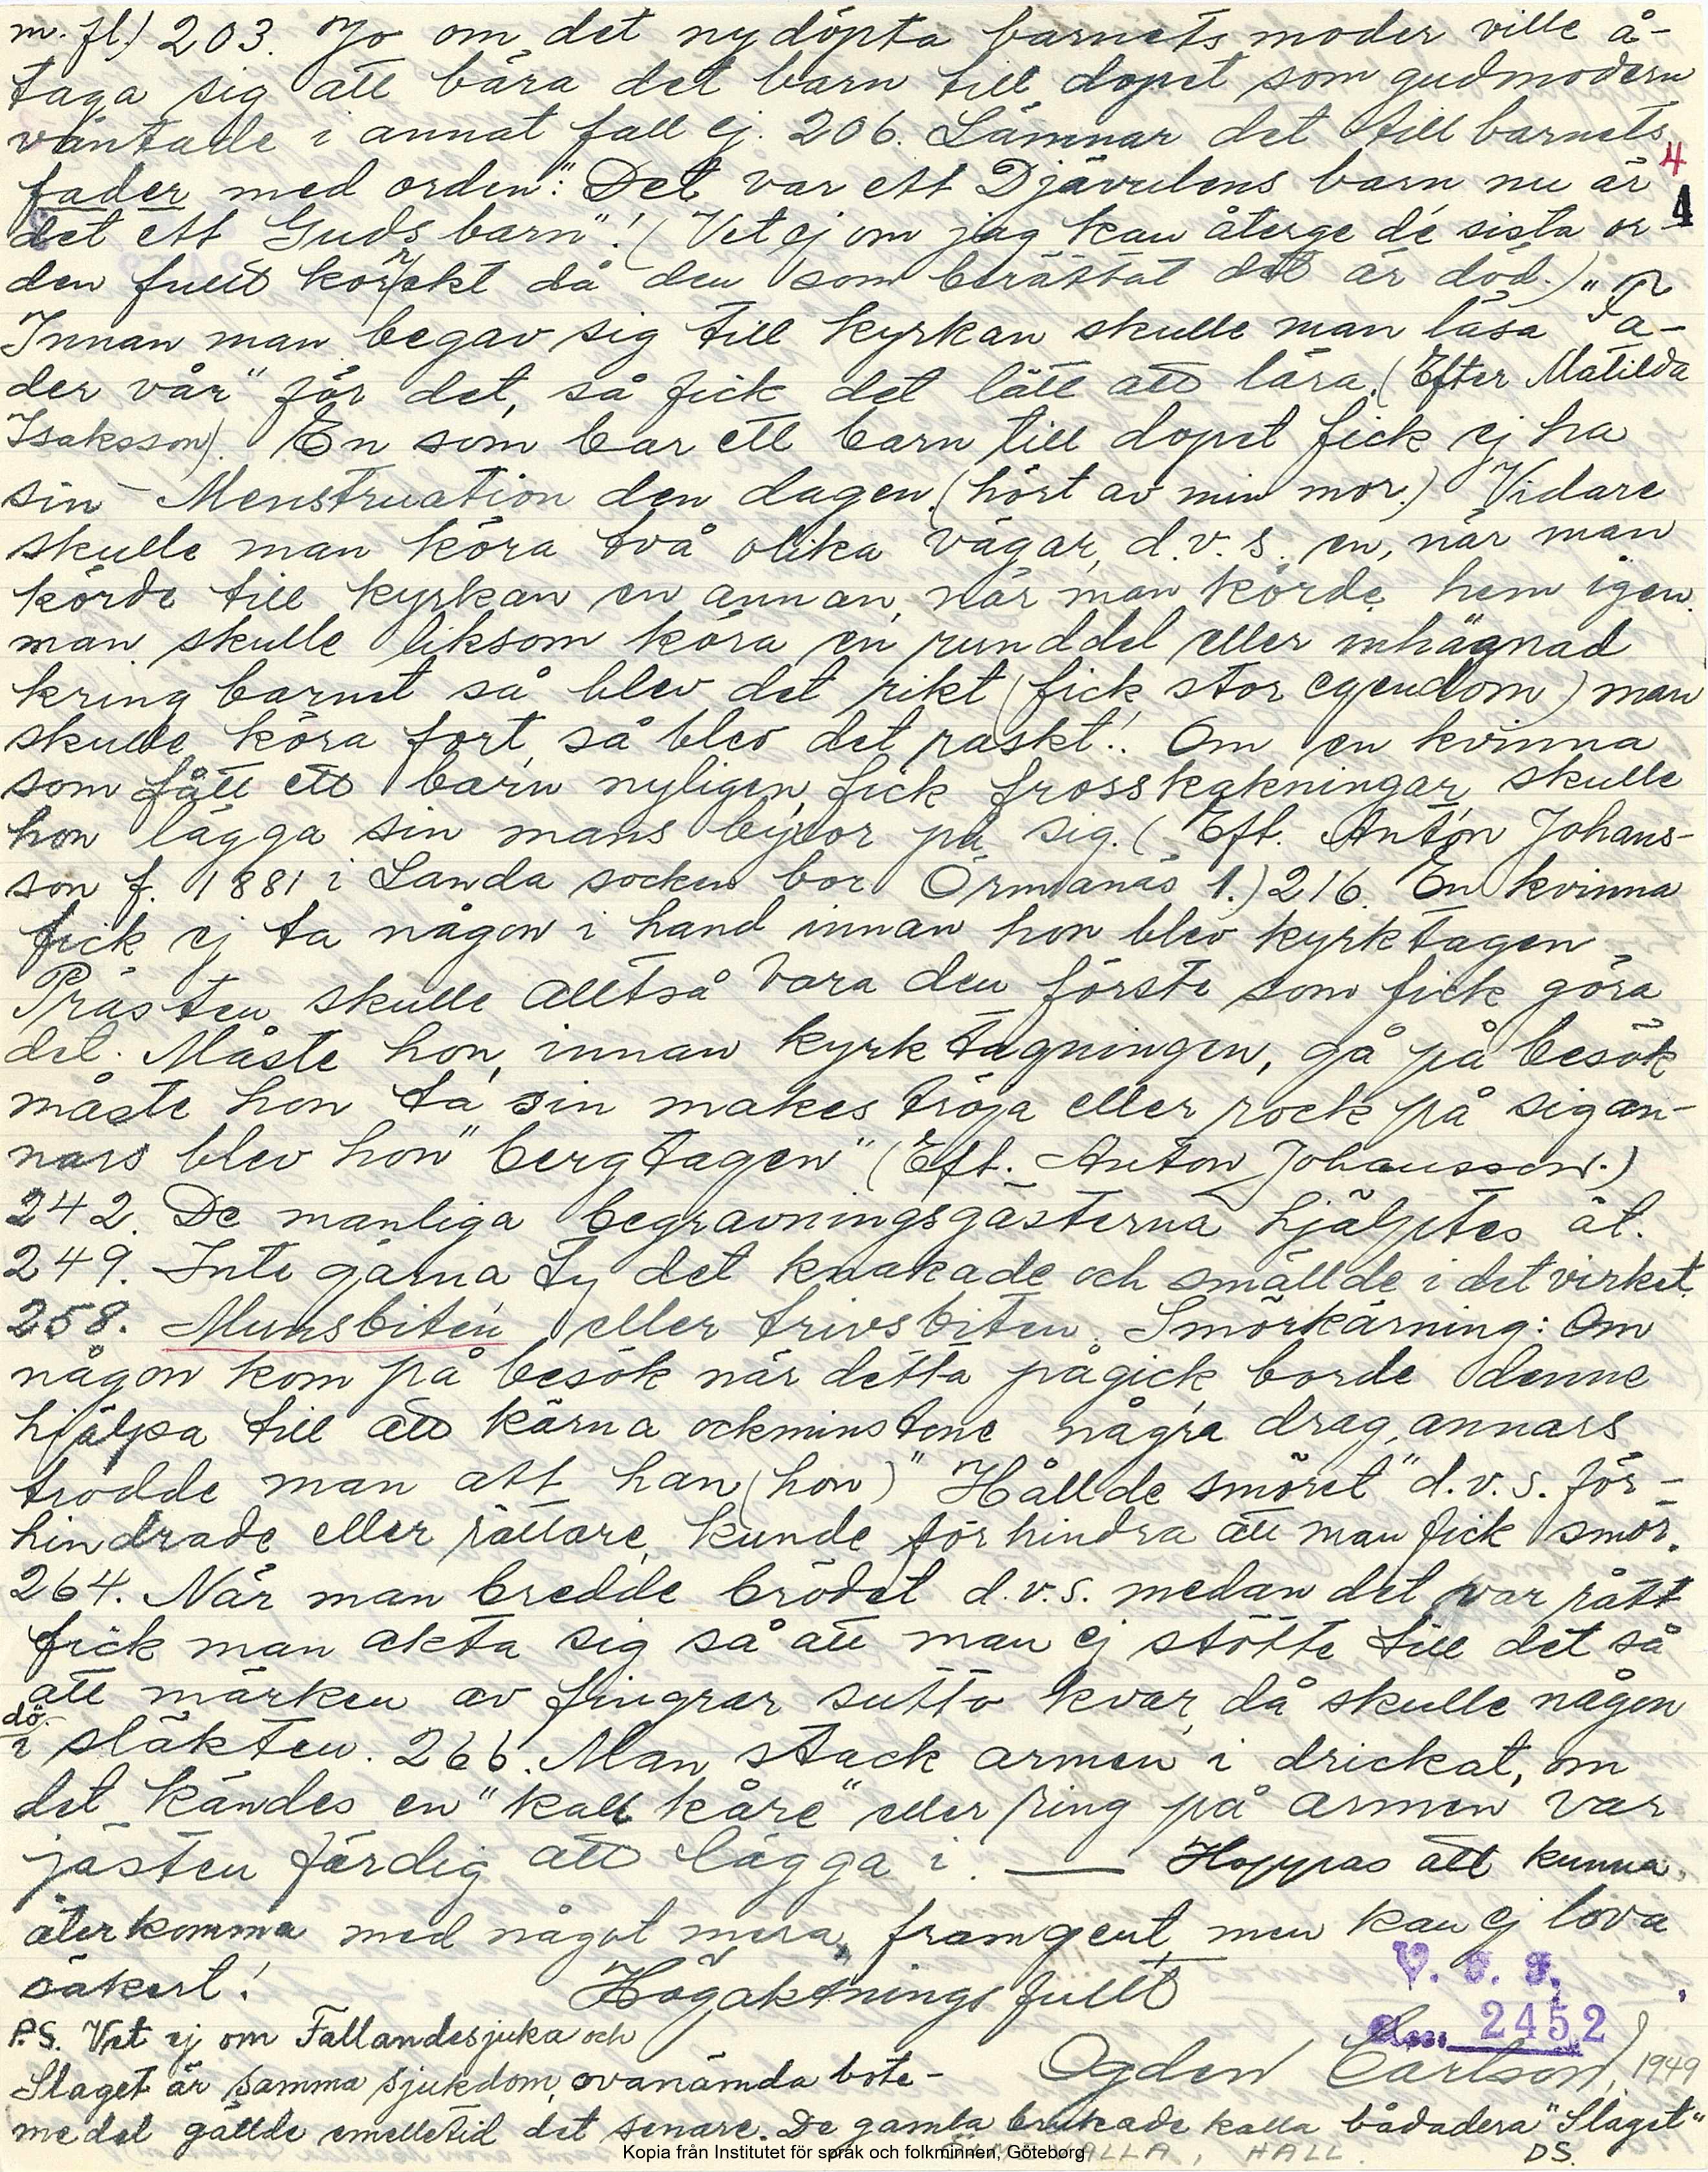 m. fl.) 203. Jo om det nydöpta barnets moder ville å-
taga sig att bära det barn till dopet som gudmodern
väntade i annat fall ej. 206. Lämnar det till barnets
4
fader med orden: "Det var ett Djävulens barn nu är
4
det ett Guds barn"! (Vet ej om jag kan återge de sista or-
den fullt korrekt då den som berättat det är död.) "Fa-
Innan man begav sig till kyrkan skulle man läsa
der vår" för det, så fick det lätt att lära. (Efter Matilda
Isaksson). En som bar ett barn till dopet fick ej ha
sin Menstruation den dagen. (hört av min mor.) Vidare
skulle man köra två olika vägar, d.v.s. en, när man
körde till kyrkan en annan, när man körde hem igen.
man skulle liksom köra en runddel eller inhägnad
kring barnet så blev det rikt (fick stor egendom) man
skulle köra fort, så blev det raskt!. Om en kvinna
som fått ett barn nyligen, fick frosskakningar, skulle
hon lägga sin mans byxor på sig. (Eft. Anton Johans-
son f. 1881 i Landa socken bor Örmanäs 1.) 216. En kvinna
fick ej ta någon i hand innan hon blev kyrktagen
Prästen skulle alltså vara den förste som fick göra
det. Måste hon, innan kyrktagningen, gå på besök
måste hon ta sin makes tröja eller rock på sig an-
nars blev hon "bergtagen" (Eft. Anton Johansson.)
242. De manliga begravningsgästerna hjälptes åt.
249. Inte gärna ty det knakade och smällde i det virket.
258. Munsbiten eller trivsbiten. Smörkärning: Om
någon kom på besök när detta pågick, borde denne
hjälpa till att kärna åckminstone några drag, annars
trodde man att han (hon) "Hållde smöret" d.v.s. för-
hindrade eller rättare, kunde förhindra att man fick smör.
264. När man bredde brödet d.v.s. medan det var rått
fick man akta sig så att man ej stötte till det så
att märken av fingrar sutto kvar, då skulle någon
dö
i släkten. 266. Man stack armen i drickat, om
det kändes en "kall kåre" eller ring på armen var
jästen färdig att lägga i. — Hoppas att kunna
återkomma med något mera, framgent, men kan ej lova
säkert! Högaktningsfullt
V. F. F.
2452
P.S. Vet ej om Fallandesjuka och
Ogden Carlson, 1949
Slaget är samma sjukdom, ovanämda bote-
medel gällde emelletid det senare. De gamla brukade kalla bådadera "Slaget"
DS.
Kopia från Institutet för språk och folkminnen, Göteborg